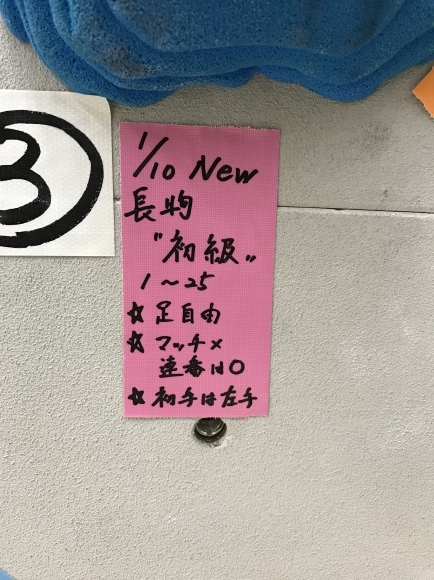 ③
1/10 New
長駒
"初級"
1～25
☆ 足自由
☆ マッチ×
連番は○
☆ 初手は左手